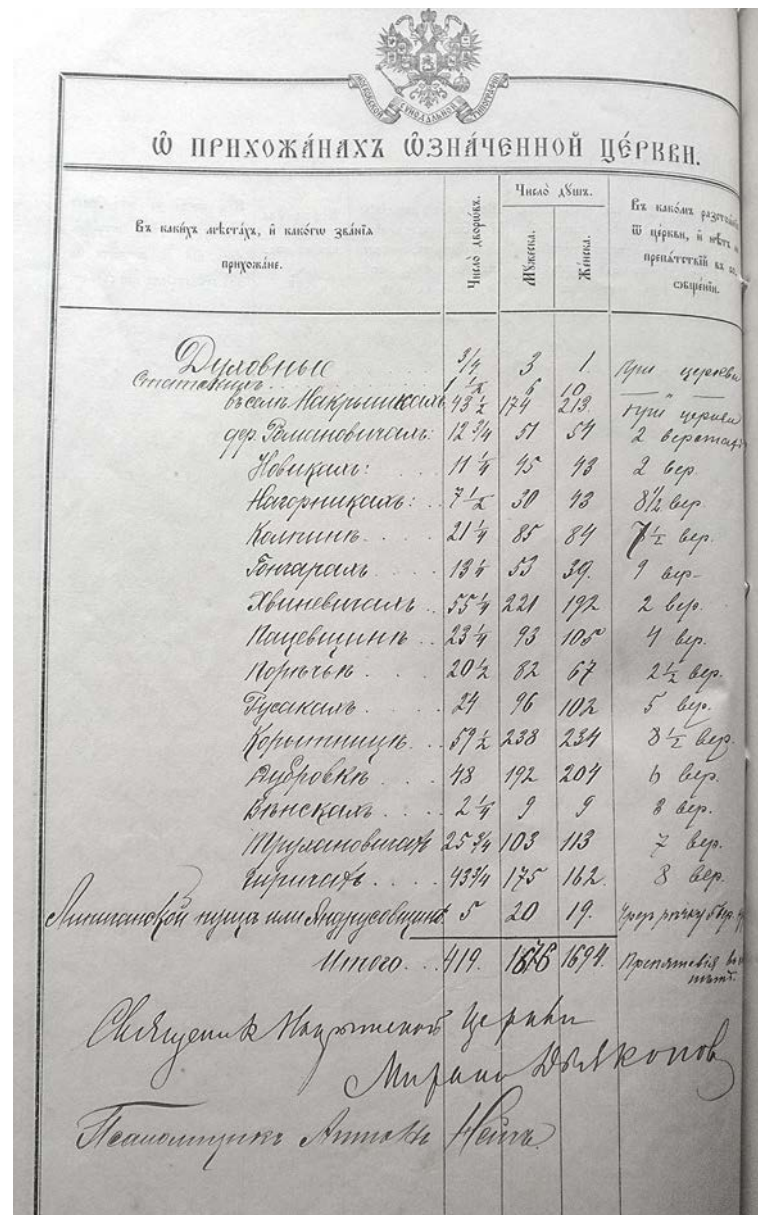 МОСКОВСКОЙ СѴНОДАЛЬНОЙ ТИПОГРАФІИ
Ѿ ПРИХОЖА́НАХЪ Ѡ҆ЗНА́ЧЕННОЙ ЦЕ́РКВИ.
Въ каки́хъ мѣста́хъ, и҆ како́гѡ зва́нїѧ прихожа́не.
Число̀ дворѡ́въ.
Число̀ дꙋ́шъ.
Мꙋ́жеска.
Же́нска.
Въ како́мъ
ѿ це́ркви, и҆ нѣ́тъ
препѧ́тствїй въ
соѡбще́нїи.
Духовные 3/4 3 1. при церкви
Статскихъ 1 1/2 6 10.
въ селѣ Накрышкахъ 43 1/2 174 213. при церкви
дер. Романовичахъ: 12 3/4 51 54 2 верстахъ
Новикахъ: 11 1/4 45 43 2 вер.
Нагорникахъ: 7 1/2 30 43 8 1/2 вер.
Колпинѣ 21 1/4 85 84 7 1/2 вер.
Гончарахъ 13 1/4 53 39. 9 вер.
Хвиневичахъ 55 1/4 221 192 2 вер.
Пацевщинѣ 23 1/4 93 105 4 вер.
Порѣчьѣ 20 1/2 82 67 2 1/2 вер.
Русакахъ 24 96 102 5 вер.
Корытницѣ 59 1/2 238 234 8 1/2 вер.
Дубровкѣ 48 192 204 6 вер.
Вѣнскахъ 2 1/4 9 9 8 вер.
Трухановичахъ 25 3/4 103 113 7 вер.
Чиричахъ 43 3/4 175 162. 8 вер.
Липичанской пущѣ или Андрусовщинѣ 5 20 19. Чрезъ рѣчку 5 вер.
Итого 419. 1676 1694. Препятствія нѣтъ.
Священникъ Накрышской Церкви
Миронъ Дьяконов
Псаломщикъ Антонъ